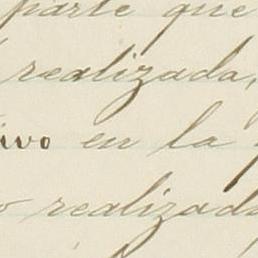 parte que
realizada,
ivo en la
realizada